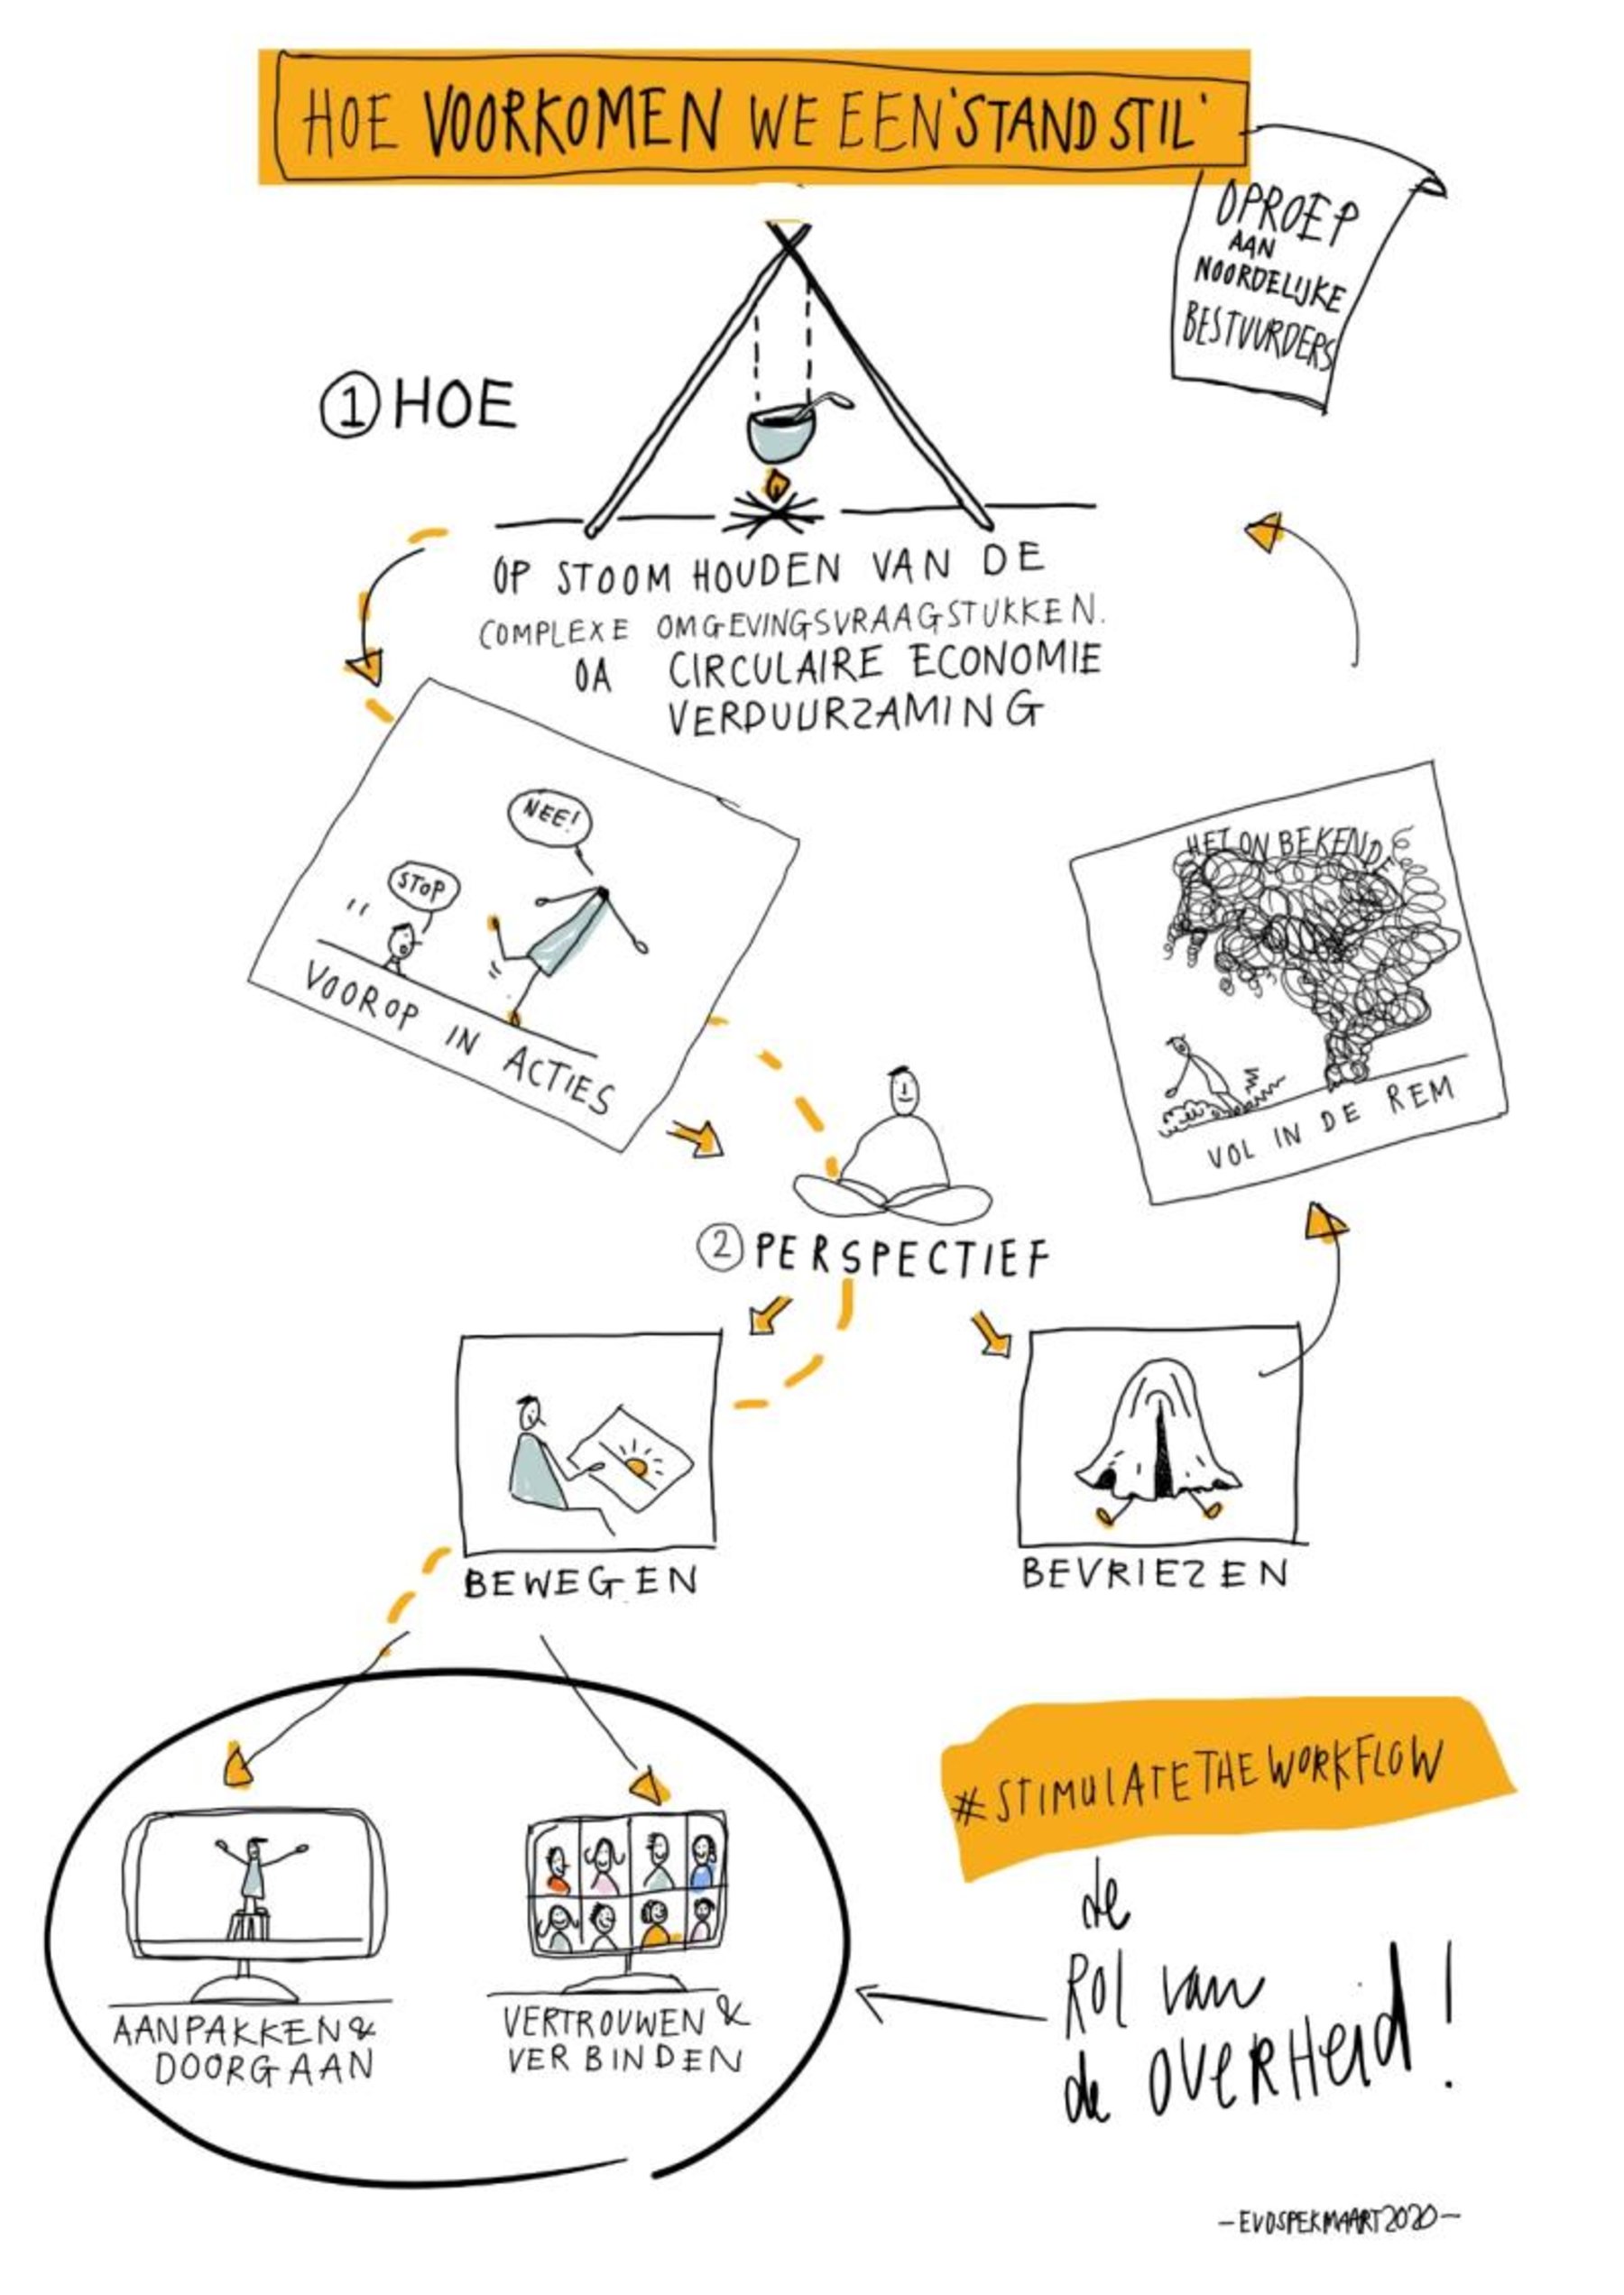 HOE VOORKOMEN WE EEN 'STAND STIL'
OPROEP
AAN
NOORDELIJKE
BESTUURDERS
1 HOE
OP STOOM HOUDEN VAN DE
COMPLEXE OMGEVINGSVRAAGSTUKKEN.
OA CIRCULAIRE ECONOMIE
VERDUURZAMING
NEE!
STOP
VOOROP IN ACTIES
HET ONBEKENDE
VOL IN DE REM
2 PERSPECTIEF
BEWEGEN
BEVRIEZEN
#STIMULATETHEWORKFLOW
de
Rol van
de OVERHEID!
AANPAKKEN &
DOORGAAN
VERTROUWEN &
VERBINDEN
- EVDSPEK MAART 2020 -